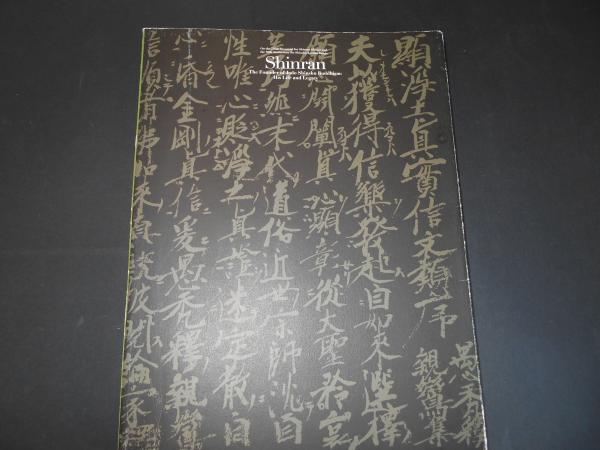 On the 750th Memorial for Shinran Shonin and
Shinran
The Founder of Jodo Shinshu Buddhism:
His Life and Legacy
顯浄土真實信文類序
愚禿釋
親鸞集
夫以獲得信樂發起自如來選擇
願心開闡真心顯彰從大聖矜哀
善巧然末代道俗近世宗師沈自
性唯心貶浄土真證迷定散自
心昏金剛真信爰愚禿釋親鸞
信順諸佛如來真說披閱論家